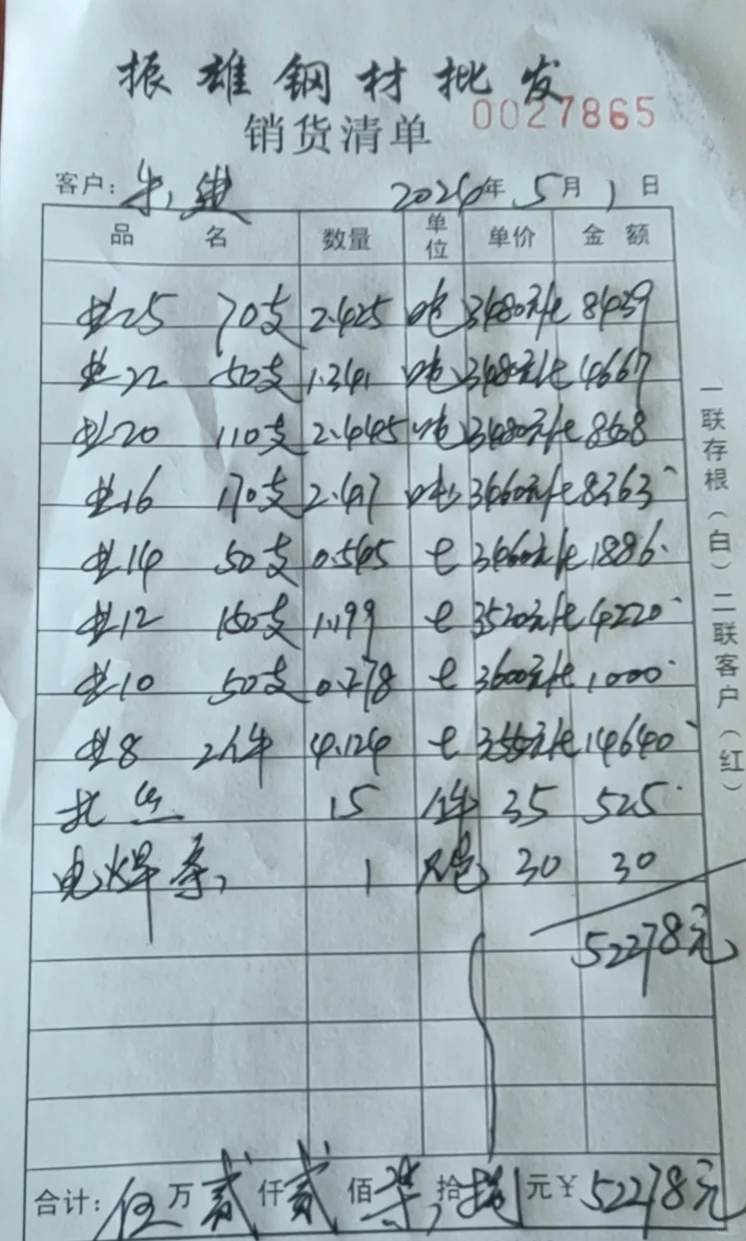 振雄钢材批发
0027865
销货清单
客户: 朱建 2024年5月1日
品名 数量 单位 单价 金额
25 70支 2.425 吨 3480元/t 8439
22 50支 1.341 吨 3480元/t 4667
20 110支 2.445 吨 3480元/t 8508
16 170支 2.417 吨 3460元/t 8363
14 50支 0.545 t 3460元/t 1886.
12 150支 1.199 t 3520元/t 4220
10 50支 0.278 t 3600元/t 1000
8 2件 4.124 t 355元/t 14640
扎丝 15 件 35 525
电焊条 1 包 30 30
52278元
合计: 伍万贰仟贰佰柒拾捌元¥52278元
一联存根(白)二联客户(红)